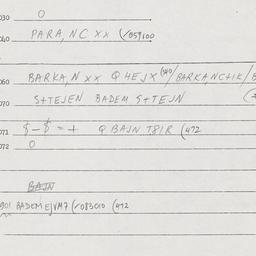 030 0
040 PARA, NC XX (✓059100
060 BARKA,N XX Q HEJX(040)/BARKANCHIK/
070 S+TEJEN BADEM S+TEJN
071 $-$ = + Q BAJN T8IR (472
072 0
BAJN
901 BADEM EJVM7 (✓083010 (472